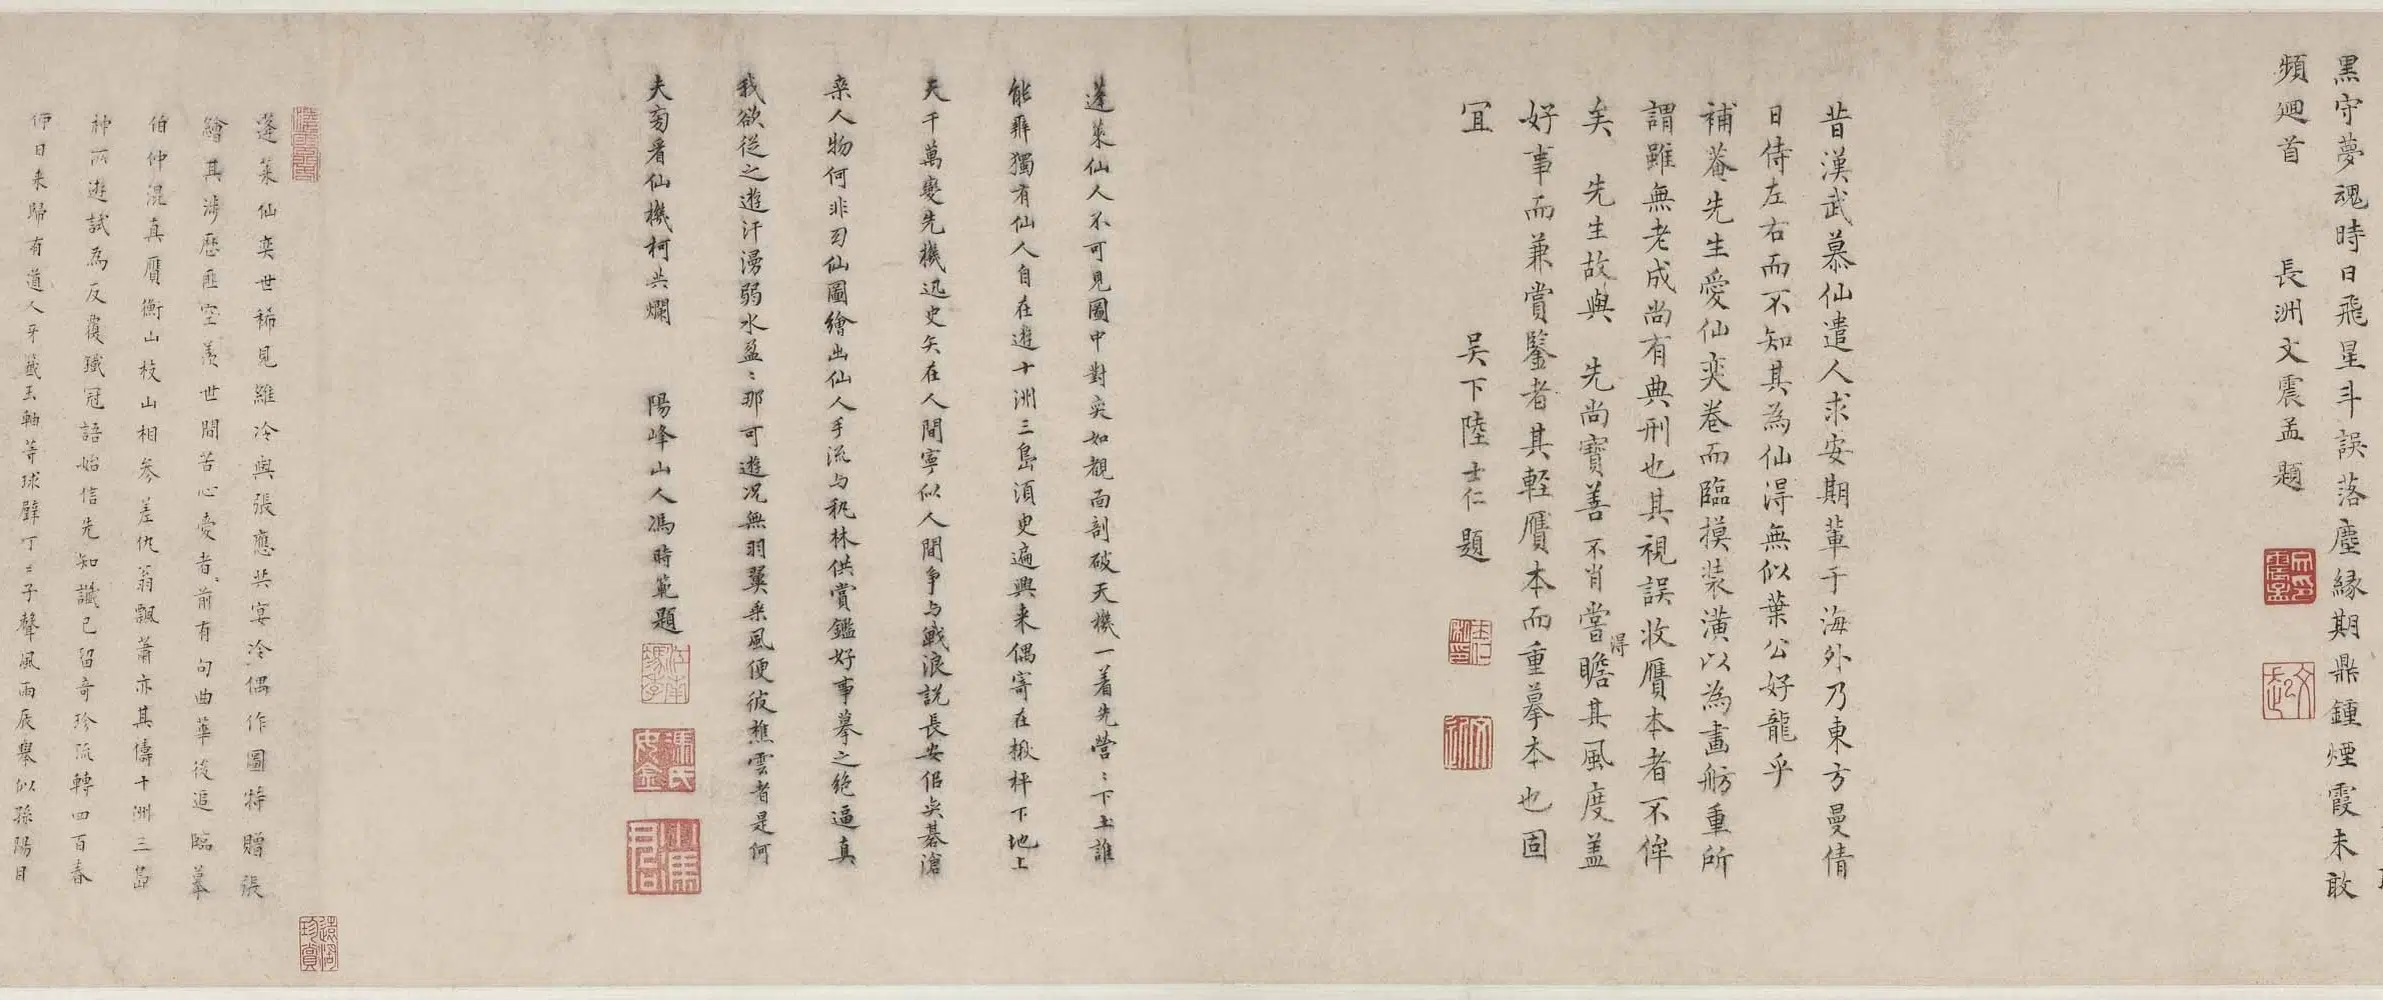 黑守夢魂時日飛星斗誤落塵緣期鼎鍾煙霞未敢
頻廻首　長洲文震孟題
昔漢武慕仙遣人求安期輩于海外乃東方曼倩
日侍左右而不知其為仙得無似葉公好龍乎
補菴先生愛仙奕卷而臨摸裝潢以為畫舫重所
謂雖無老成尚有典刑也其視誤收贗本者不侔
矣　先生故與　先尚寶善不肖嘗得瞻其風度盖
好事而兼賞鑒者其輕贗本而重摹本也固
宜　吳下陸士仁題
蓬萊仙人不可見圖中對奕如覩面剖破天機一着先營〻下土誰
能辨獨有仙人自在遊十洲三島須臾遍興来偶寄在楸枰下地上
天千萬變先機迅史矢在人間寧似人間争与戰浪説長安侶奕碁滄
桒人物何非幻仙圖繪出仙人手流与秇林供賞鑑好事摹之絶逼真
我欲從之遊汗漫弱水盈〻那可遊况無羽翼乗風便彼樵雲者是何
夫旁看仙機柯共爛　陽峰山人馮時範題
馮氏
蓬萊仙奕世稀見維冷與張應共宴冷偶作圖特贈張
繪其涉歷匪空羨世間苦心愛者前有句曲華後追臨摹
伯仲混真贗衡山枝山相参差仇翁飄蕭亦其儔十洲三島
神所遊試為反覆鐵冠語始信先知讖已留奇珍流轉四百春
師日来歸有道人牙籤玉軸等球璧丁〻子聲風雨辰舉似孫陽目